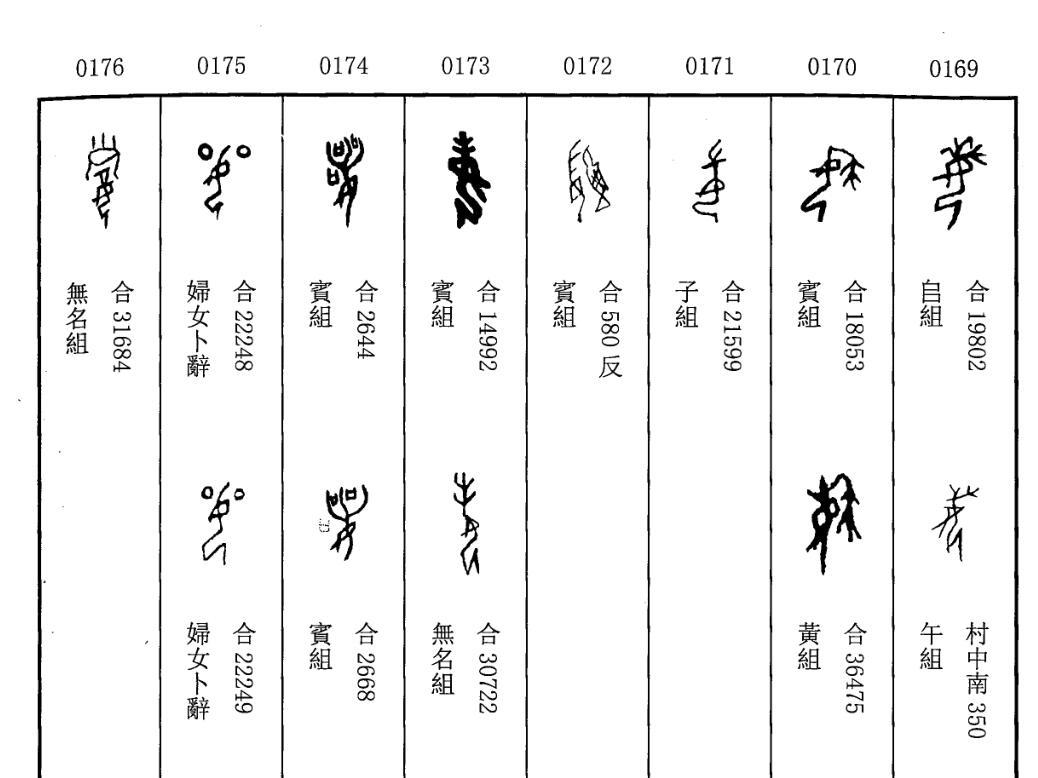 0169
合 19802
自組
村中南 350
午組
0170
合 18053
賓組
合 36475
黃組
0171
合 21599
子組
0172
合 580 反
賓組
0173
合 14992
賓組
合 30722
無名組
0174
合 2644
賓組
合 2668
賓組
0175
合 22248
婦女卜辭
合 22249
婦女卜辭
0176
合 31684
無名組